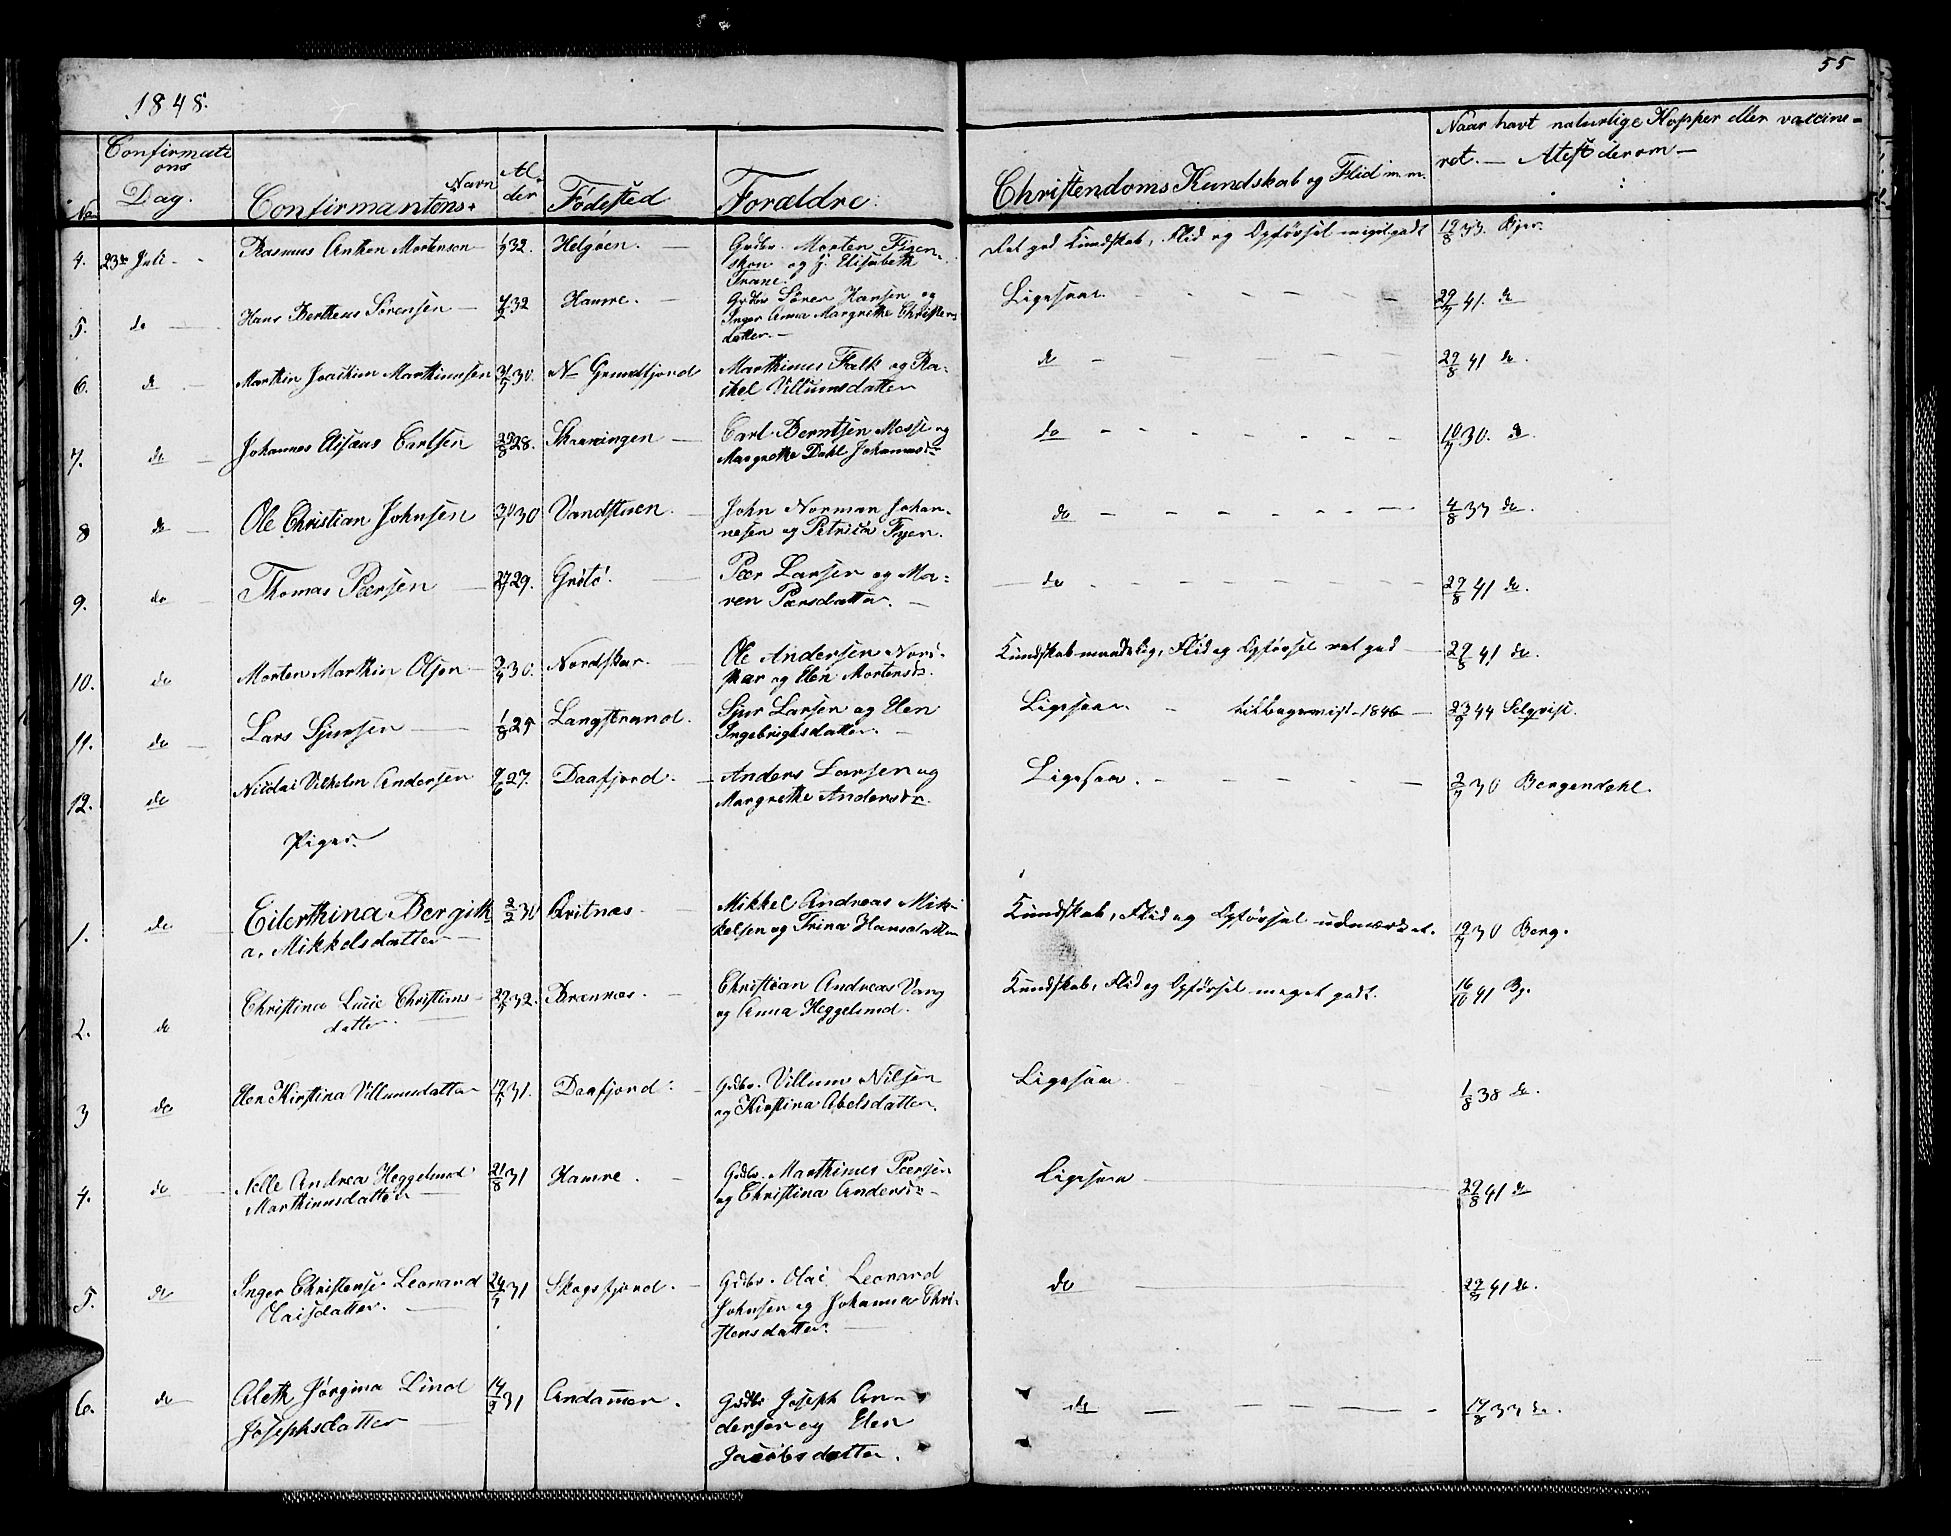 55
1848.
No
Confirmati
ons
Dag.
Navn
Confirmantens
Al-
der
Födested
Forældre
Christendoms Kundskab og Flid m.m.
Naar havt naturlige Kopper eller vaccine-
ret. — Atest derom —
4. 23de Juli Rasmus Anthon Mortensen 32. Helgöen. Grdbr. Morten Figen-
skou og H. Elisabeth
Trane.
Ret god Kundskab, Flid og Opførsel meget godt 19/8 33. Bjer.
5. do Hans Bertheus Sörensen 32 Hamre. Grdbr Sören Hansen og
Inger Anna Margrethe Christens
datter.
Ligesaa 29/7 41. do
6. do Marthin Joachim Marthinusen 30. N Grundfjord Marthinus Falk og Ra-
chel Villumsdatter
do 29/8 41 do.
7. do Johannes Elisæus Carlsen 28. Skarningen Carl Berntsen Masse og
Margrethe Dahl Johannesdr
do 10/7 30. do.
8 do Ole Christian Johnsen 30 Vandstuen John Norman Johan-
nesen og Petrica Fyen.
do 4/8 33 do.
9. do Thomas Pærsen 29. Grötö. Pær Larsen og Ma-
ren Pærsdatter.
do 29/8 41 do.
10. do Morten Marthin Olsen 30. Nordskar. Ole Andersen Nord-
skar og Elen Mortensdr.
Kundskab maadelig, Flid og Opførsel ret god 29/8 41 do.
11. do Lars Sjursen 1/8 25 Langstrand. Sjur Larsen og Elen
Ingebrigtsdatter.
Ligesaa tilbagevist 1846 23/9 44 Selqvist.
12. do Nicolai Vilhelm Andersen 9/6 27. Daafjord. Anders Larsen og
Margrethe Andersdr.
Ligesaa. 2/7 30 Bergendahl.
Piger.
1. do Eilerthina Bergith
a. Mikkelsdatter
2/2 30 Qvitnæs. Mikkel Andreas Mik-
kelsen og Trina Hansdatter
Kundskab, Flid og Opførsel udmærket. 19/7 30 Berg.
2. do Christina Lucie Christians-
datter.
32. Brænnæs. Christian Andreas Vang
og Anna Heggelund.
Kundskab, Flid og Opførsel meget godt. 16/10 41 Bj.
3 do Elen Kirstina Villumsdatter 31. Daafjord. Grdbr. Villum Nilsen
og Kirstina Abelsdatter.
Ligesaa 1/8 38 do.
4. do Nelle Andrea Heggelund
Marthinusdatter
21/8 31 Hamre. Grdbr. Marthinus Pærsen
og Christina Andersdr
Ligesaa 29/8 41 do
5. do Inger Christense Leonard
Olaisdatter.
31 Skogsfjord. Grdbr. Olai Leonard
Johnsen og Johanna Chri-
stensdatter.
do 29/8 41 do.
6. do Aleth Jørgina Lind
Josephsdatter
14/2 31 Andammen. Grdbr Joseph An-
dersen og Elen
Jacobsdatter.
do 14/8 33 do.